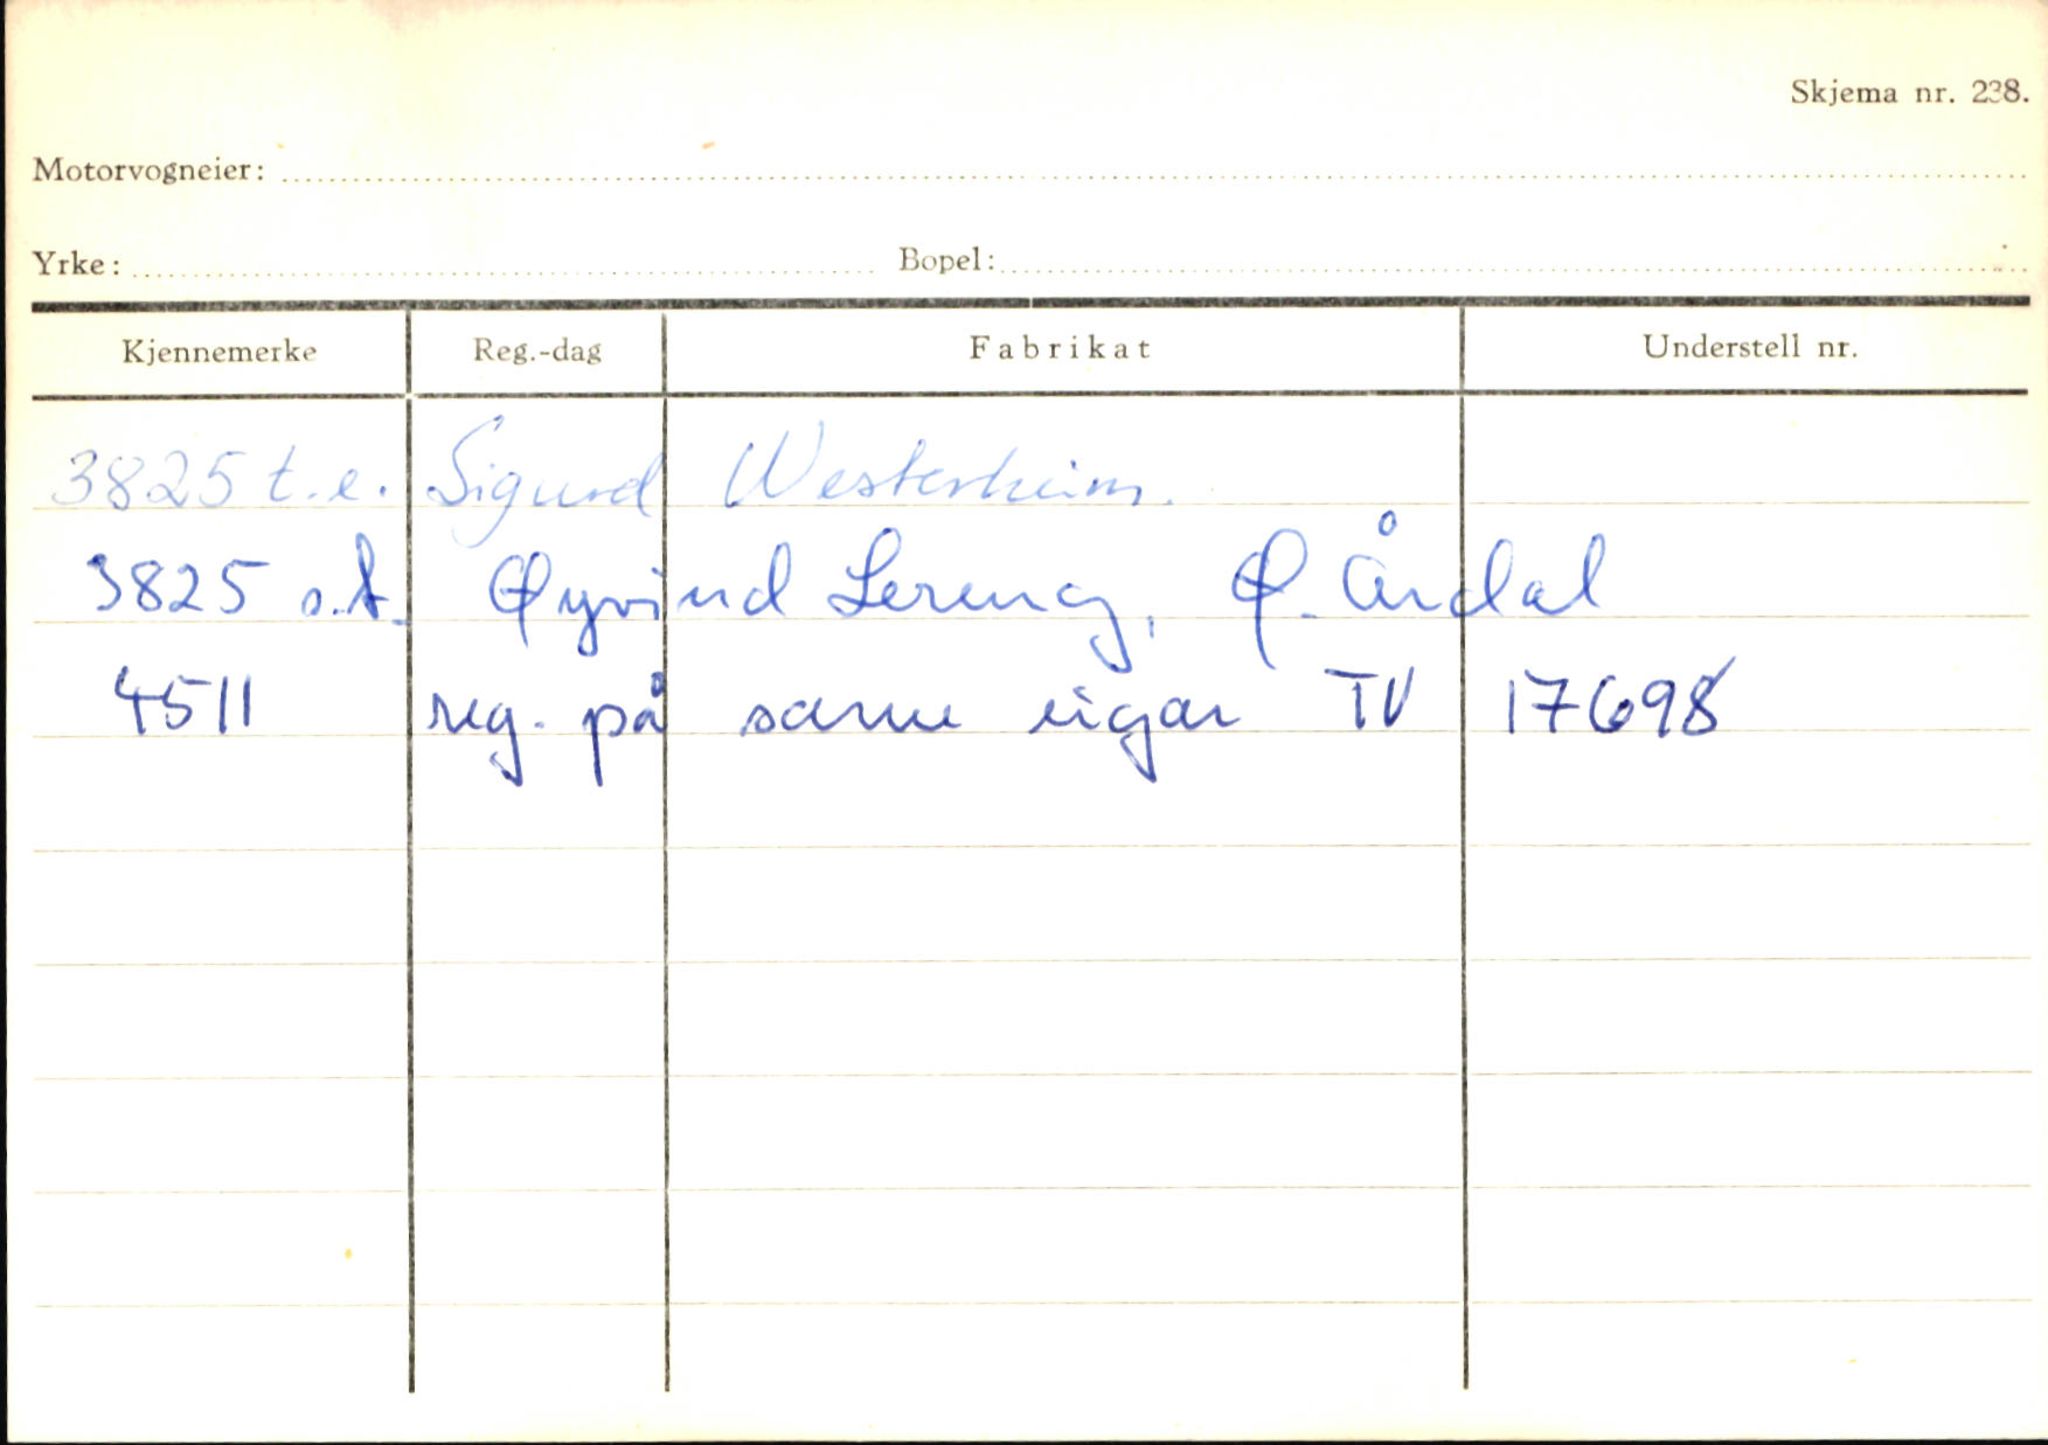 Skjema nr. 238.
Motorvogneier:
Yrke: Bopel:
Kjennemerke Reg.-dag Fabrikat Understell nr.
3825 t.e. Sigurd Westerheim.
3825 s.t. Øyvind Lereng, Ø. Årdal
4511 reg. på same eigar TV 17698